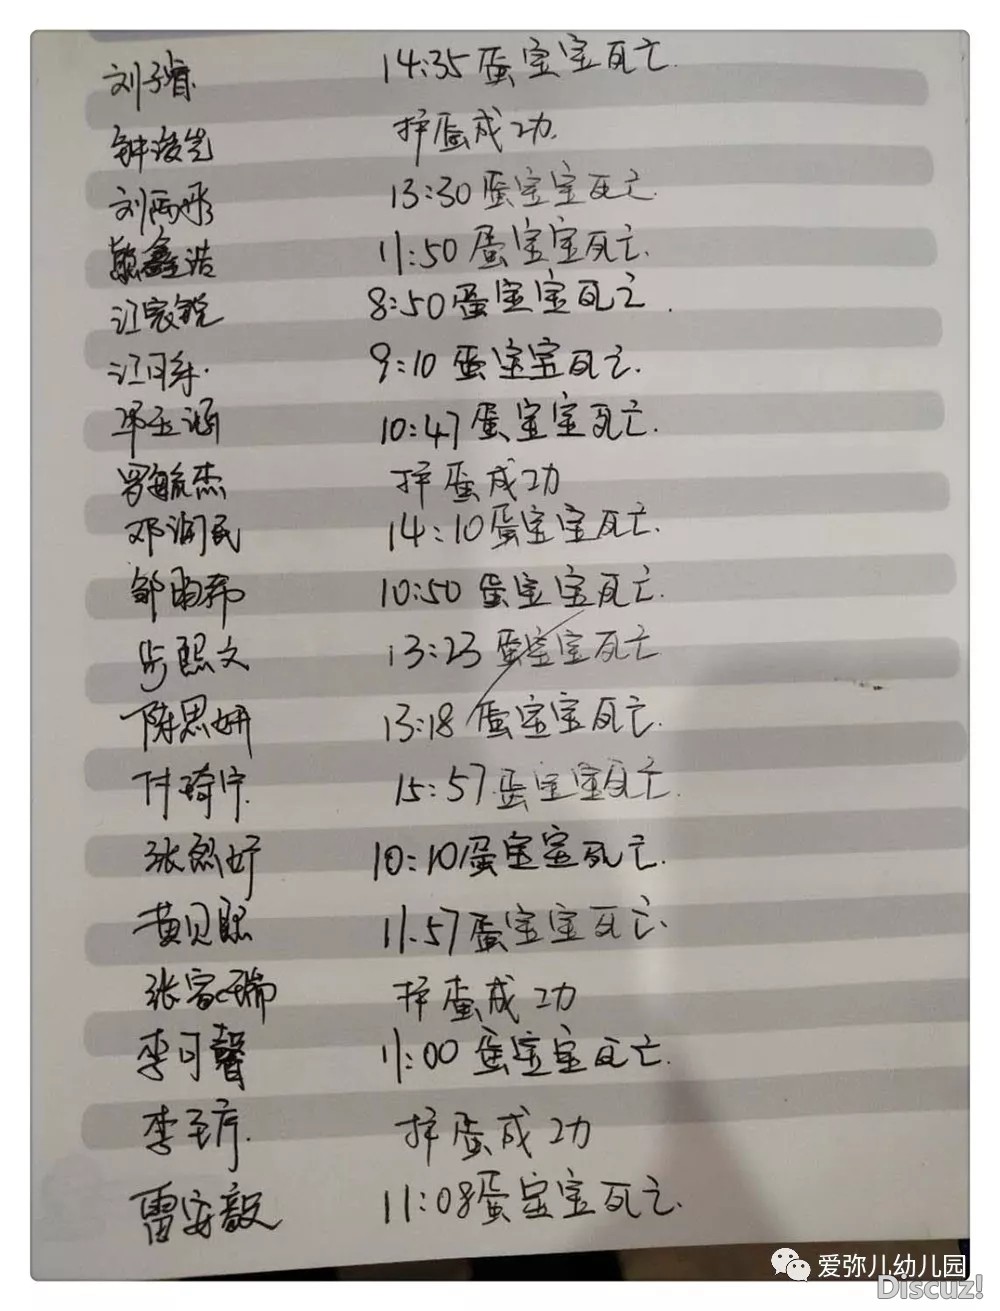 刘子睿 14:35 蛋宝宝死亡.
钟浚岂 护蛋成功.
刘雨彤 13:30 蛋宝宝死亡.
熊鑫浩 11:50 蛋宝宝死亡.
江宸锐 8:50 蛋宝宝死亡.
江 9:10 蛋宝宝死亡.
邓玉涵 10:47 蛋宝宝死亡.
罗毓杰 护蛋成功
邓润民 14:10 蛋宝宝死亡.
邹雨希 10:50 蛋宝宝死亡.
步熙文 13:23 蛋宝宝死亡
陈思妍 13:18 蛋宝宝死亡.
付琦宁. 15:57. 蛋宝宝死亡.
张烈妤 10:10 蛋宝宝死亡.
黄贝熙 11.57 蛋宝宝死亡.
张睿瑞 护蛋成功
李可馨 11:00 蛋宝宝死亡.
李 护蛋成功
雷安毅 11:08 蛋宝宝死亡.
爱弥儿幼儿园
Discuz!